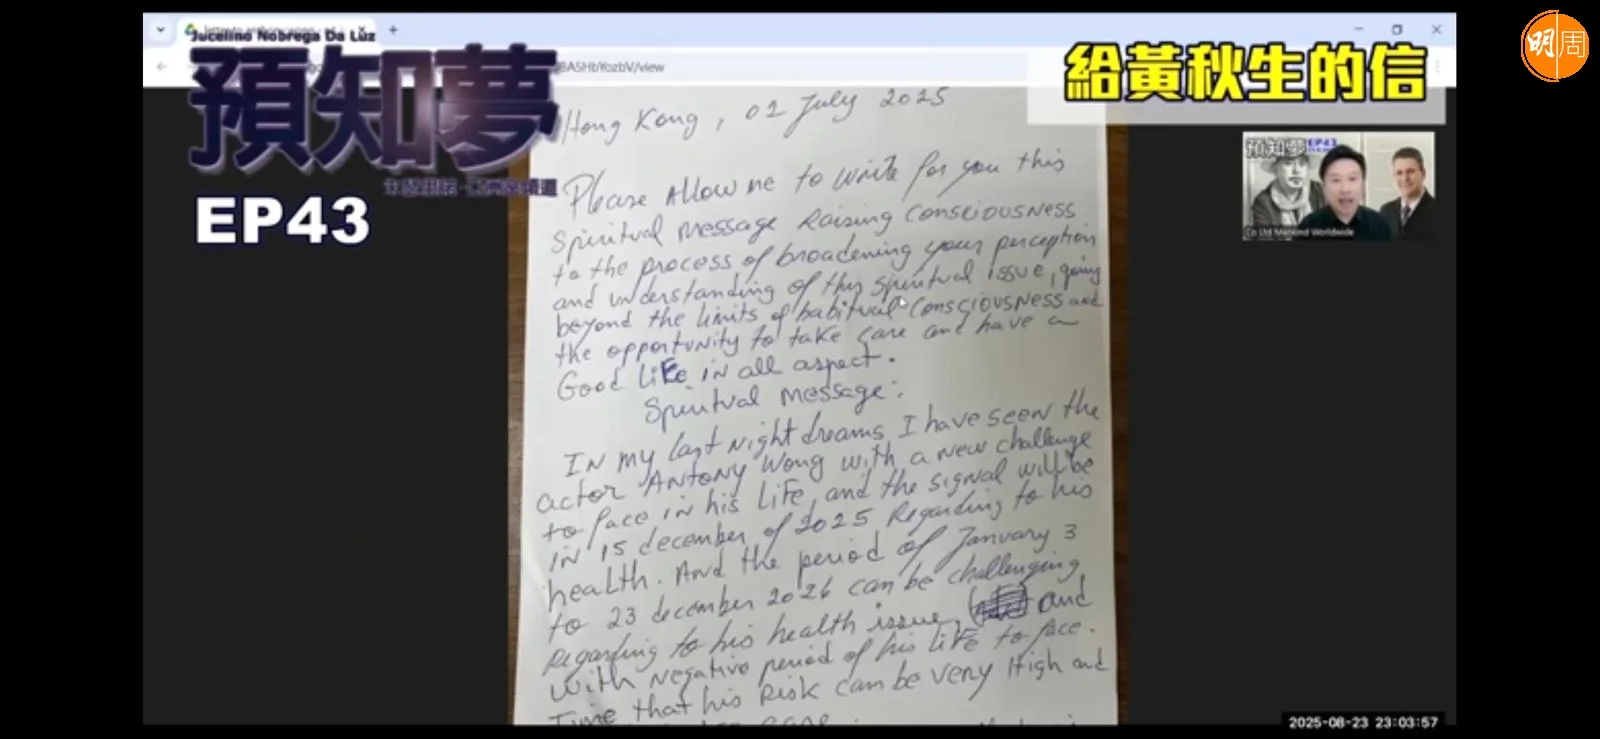 Jucelino Nobrega Da Luz
預知夢
EP43
BA5HbYozbV/view
給黃秋生的信
明周
預知夢 EP43
Co Ltd Mankind Worldwide
Hong Kong, 02 July 2025
Please Allow me to write for you this
spiritual message Raising Consciousness
to the process of broadening your perception
and understanding of this spiritual issue, going
beyond the limits of habitual consciousness and
the opportunity to take care and have a
Good LiFE in all aspect.
Spiritual message:
In my last night dreams I have seen the
actor Antony Wong with a new challenge
to face in his LiFE, and the signal will be
in 15 december of 2025 Regarding to his
health. And the period of January 3
to 23 december 2026 can be challenging
Regarding to his health issue, and
with negative period of his LiFE to face.
Time that his Risk can be very High and
2025-08-23 23:03:57